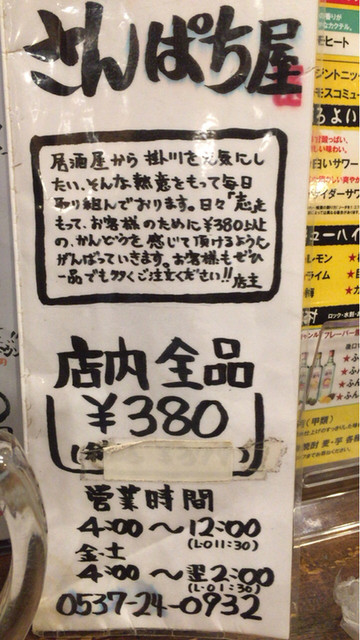 さんぱち屋
居酒屋から掛川を元気にし
たい、そんな熱意をもって毎日
取り組んでおります。日々
もって、お客様のために¥380以上
の、かんどうを感じて頂けるように
がんばっていきます。お客様もぜひ
一品でも多くご注文ください!!店主
店内全品
¥380
営業時間
4:00〜12:00
(L・O 11:30)
金・土
4:00〜翌2:00
(L・O 1:30)
0537-24-0932
モヒート
ジントニッ
モスコミュー
ろよい
白いサワー
サイダーサワ
ューハイ
レモン
ライム
ロック・水割・お
フレーバー焼
(甲類)
焼酎 麦・芋 各種